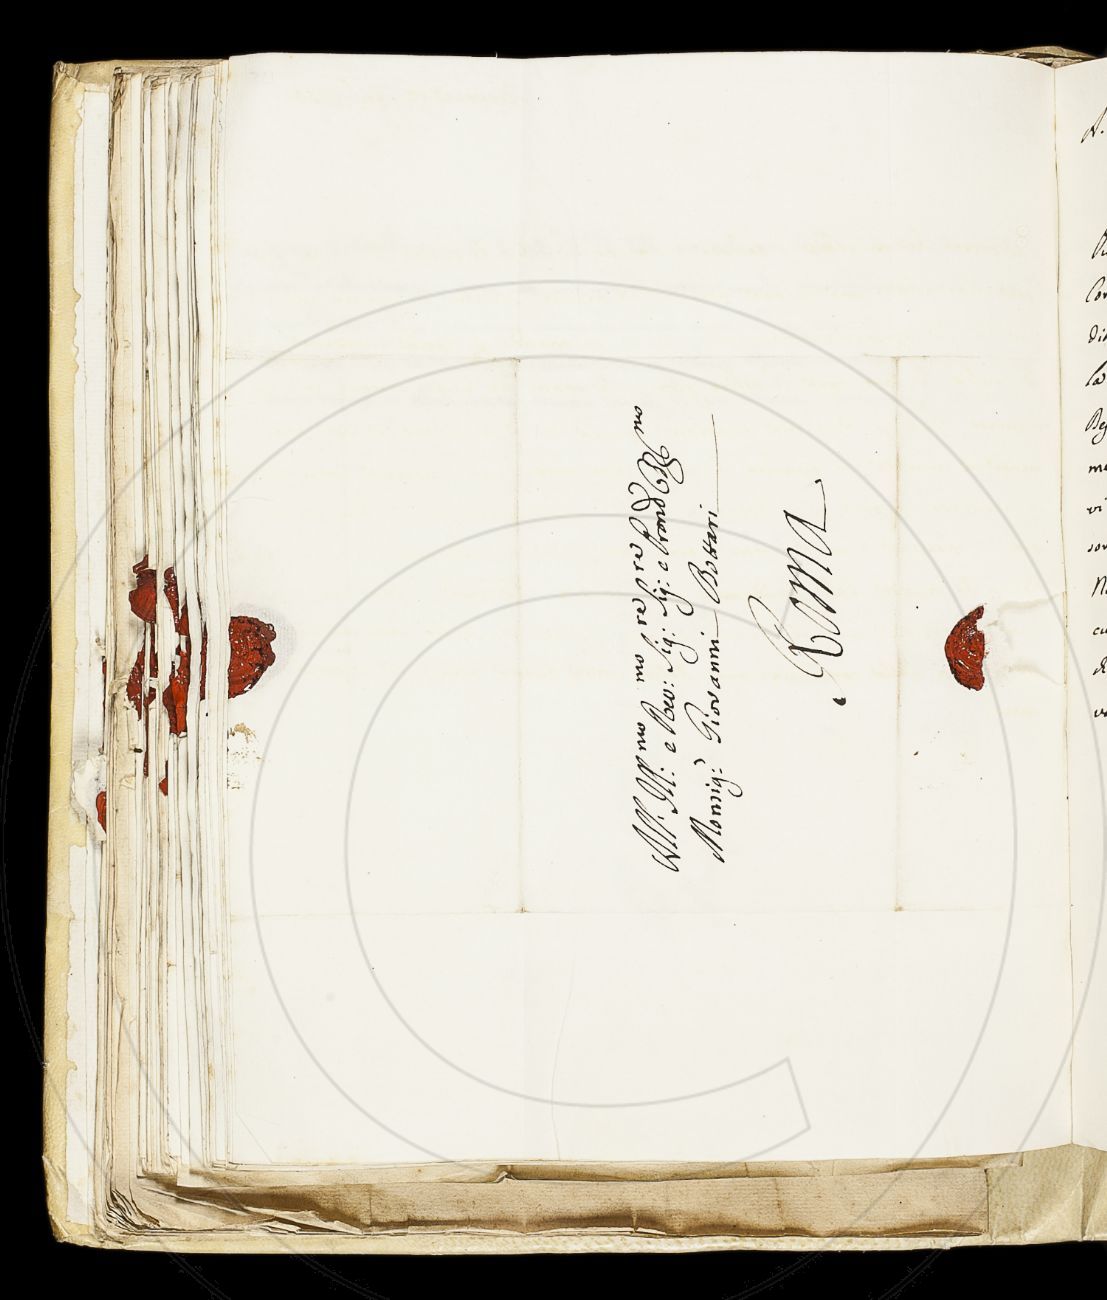 All' Ill:mo e Rev:mo Sig:re Sig:re e Prone Col:mo
Monsig:r Giovanni Bottari
Roma